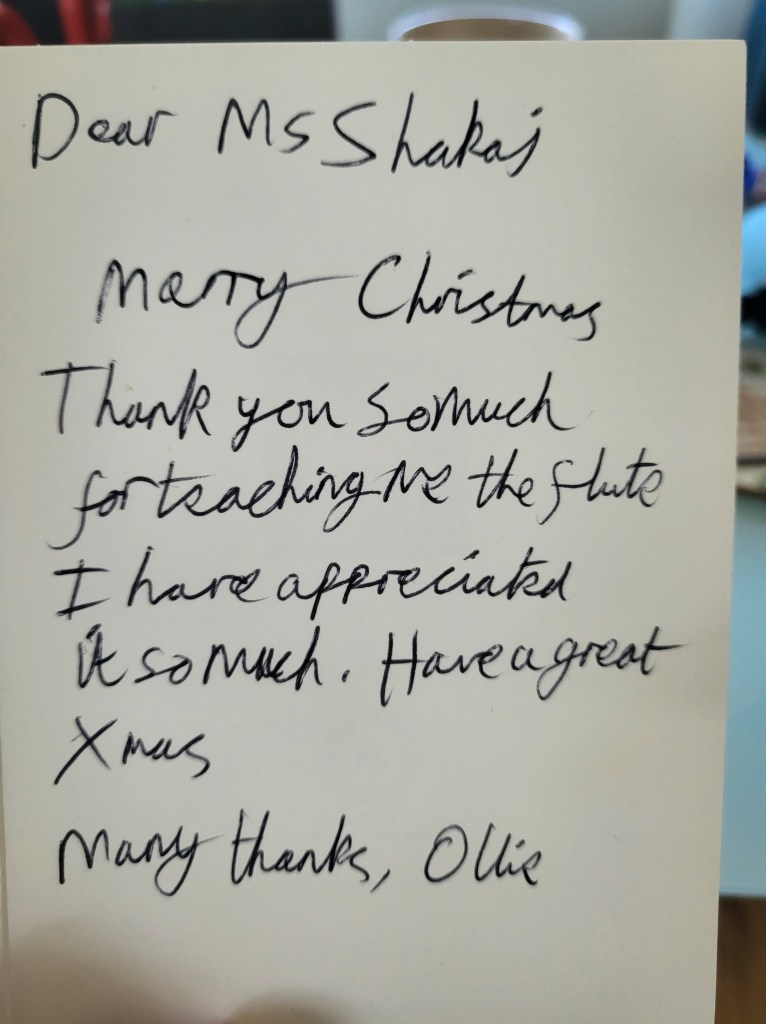 Dear Ms Shakaj
Merry Christmas
Thank you so much
for teaching me the flute
I have appreciated
it so much. Have a great
Xmas
Many thanks, Ollie